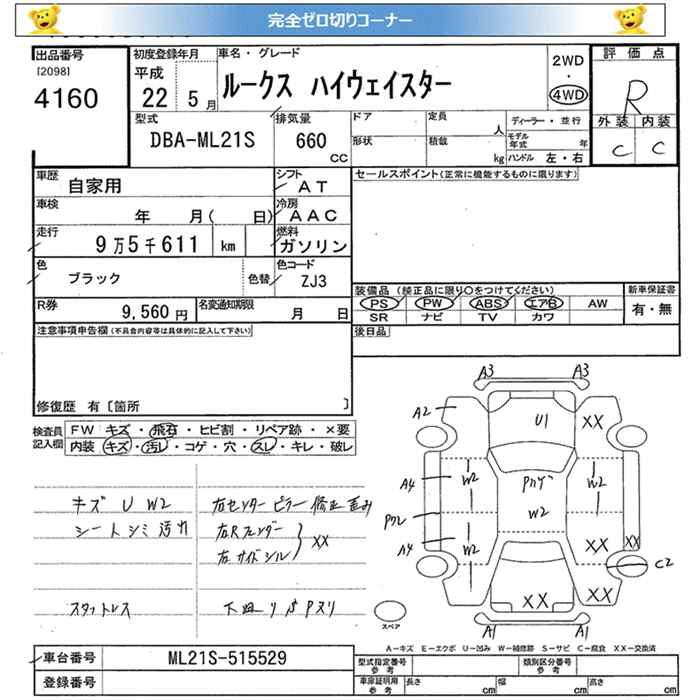 完全ゼロ切りコーナー
出品番号
[2098]
4160
初度登録年月
平成
22 5 月
車名・グレード
ルークス ハイウェイスター
2WD
・
4WD
評価点
R
外装 内装
C C
型式
DBA-ML21S
排気量
660
CC
ドア
定員
人
形状
積載
kg
ディーラー・並行
モデル
年式
年
ハンドル 左・右
車歴
自家用
シフト
AT
車検
年 月( 日)
冷房
AAC
走行
9万5千611 km
燃料
ガソリン
色
ブラック
色替
色コード
ZJ3
R券
9,560 円
名変通知期限
月 日
セールスポイント(正常に機能するものに限ります)
装備品(純正品に限り○をつけてください)
PS PW ABS エアB AW
SR ナビ TV カワ
新車保証書
有・無
後日品
注意事項申告欄(不具合内容等は具体的に記入して下さい)
修復歴 有〔箇所 〕
検査員
記入欄
FW キズ・飛石・ヒビ割・リペア跡・×要
内装 キズ・汚レ・コゲ・穴・スレ・キレ・破レ
キズ U W2
シートシミ汚れ
スタットレス
右センターピラー修正歪み
右Rフェンダー
右サイドシル
XX
下廻りサビPスリ
A3 A3
A2
U1
XX
A4
W2
Pカケ
W2
W2
Pクレ
A4
W2
XX
XX
C2
XX
A1 A1
スペア
A-キズ E-エクボ U-凹み W-補修跡 S-サビ C-腐食 XX-交換済
車台番号
ML21S-515529
登録番号
型式指定番号
参考
類別区分番号
参考
車庫証明用
参考
長さ cm 幅 cm 高さ cm